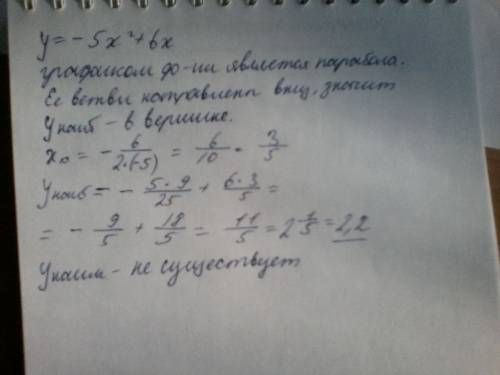 y = -5x²+6x
графиком ф-ии является парабола.
Ее ветви направлены вниз, значит
Yнаиб - в вершине.
x₀ = - 6/2·(-5) = 6/10 = 3/5
Yнаиб = - 5·9/25 + 6·3/5 =
= - 9/5 + 18/5 = 11/5 = 2 1/5 = 2,2
Yнаим - не существует